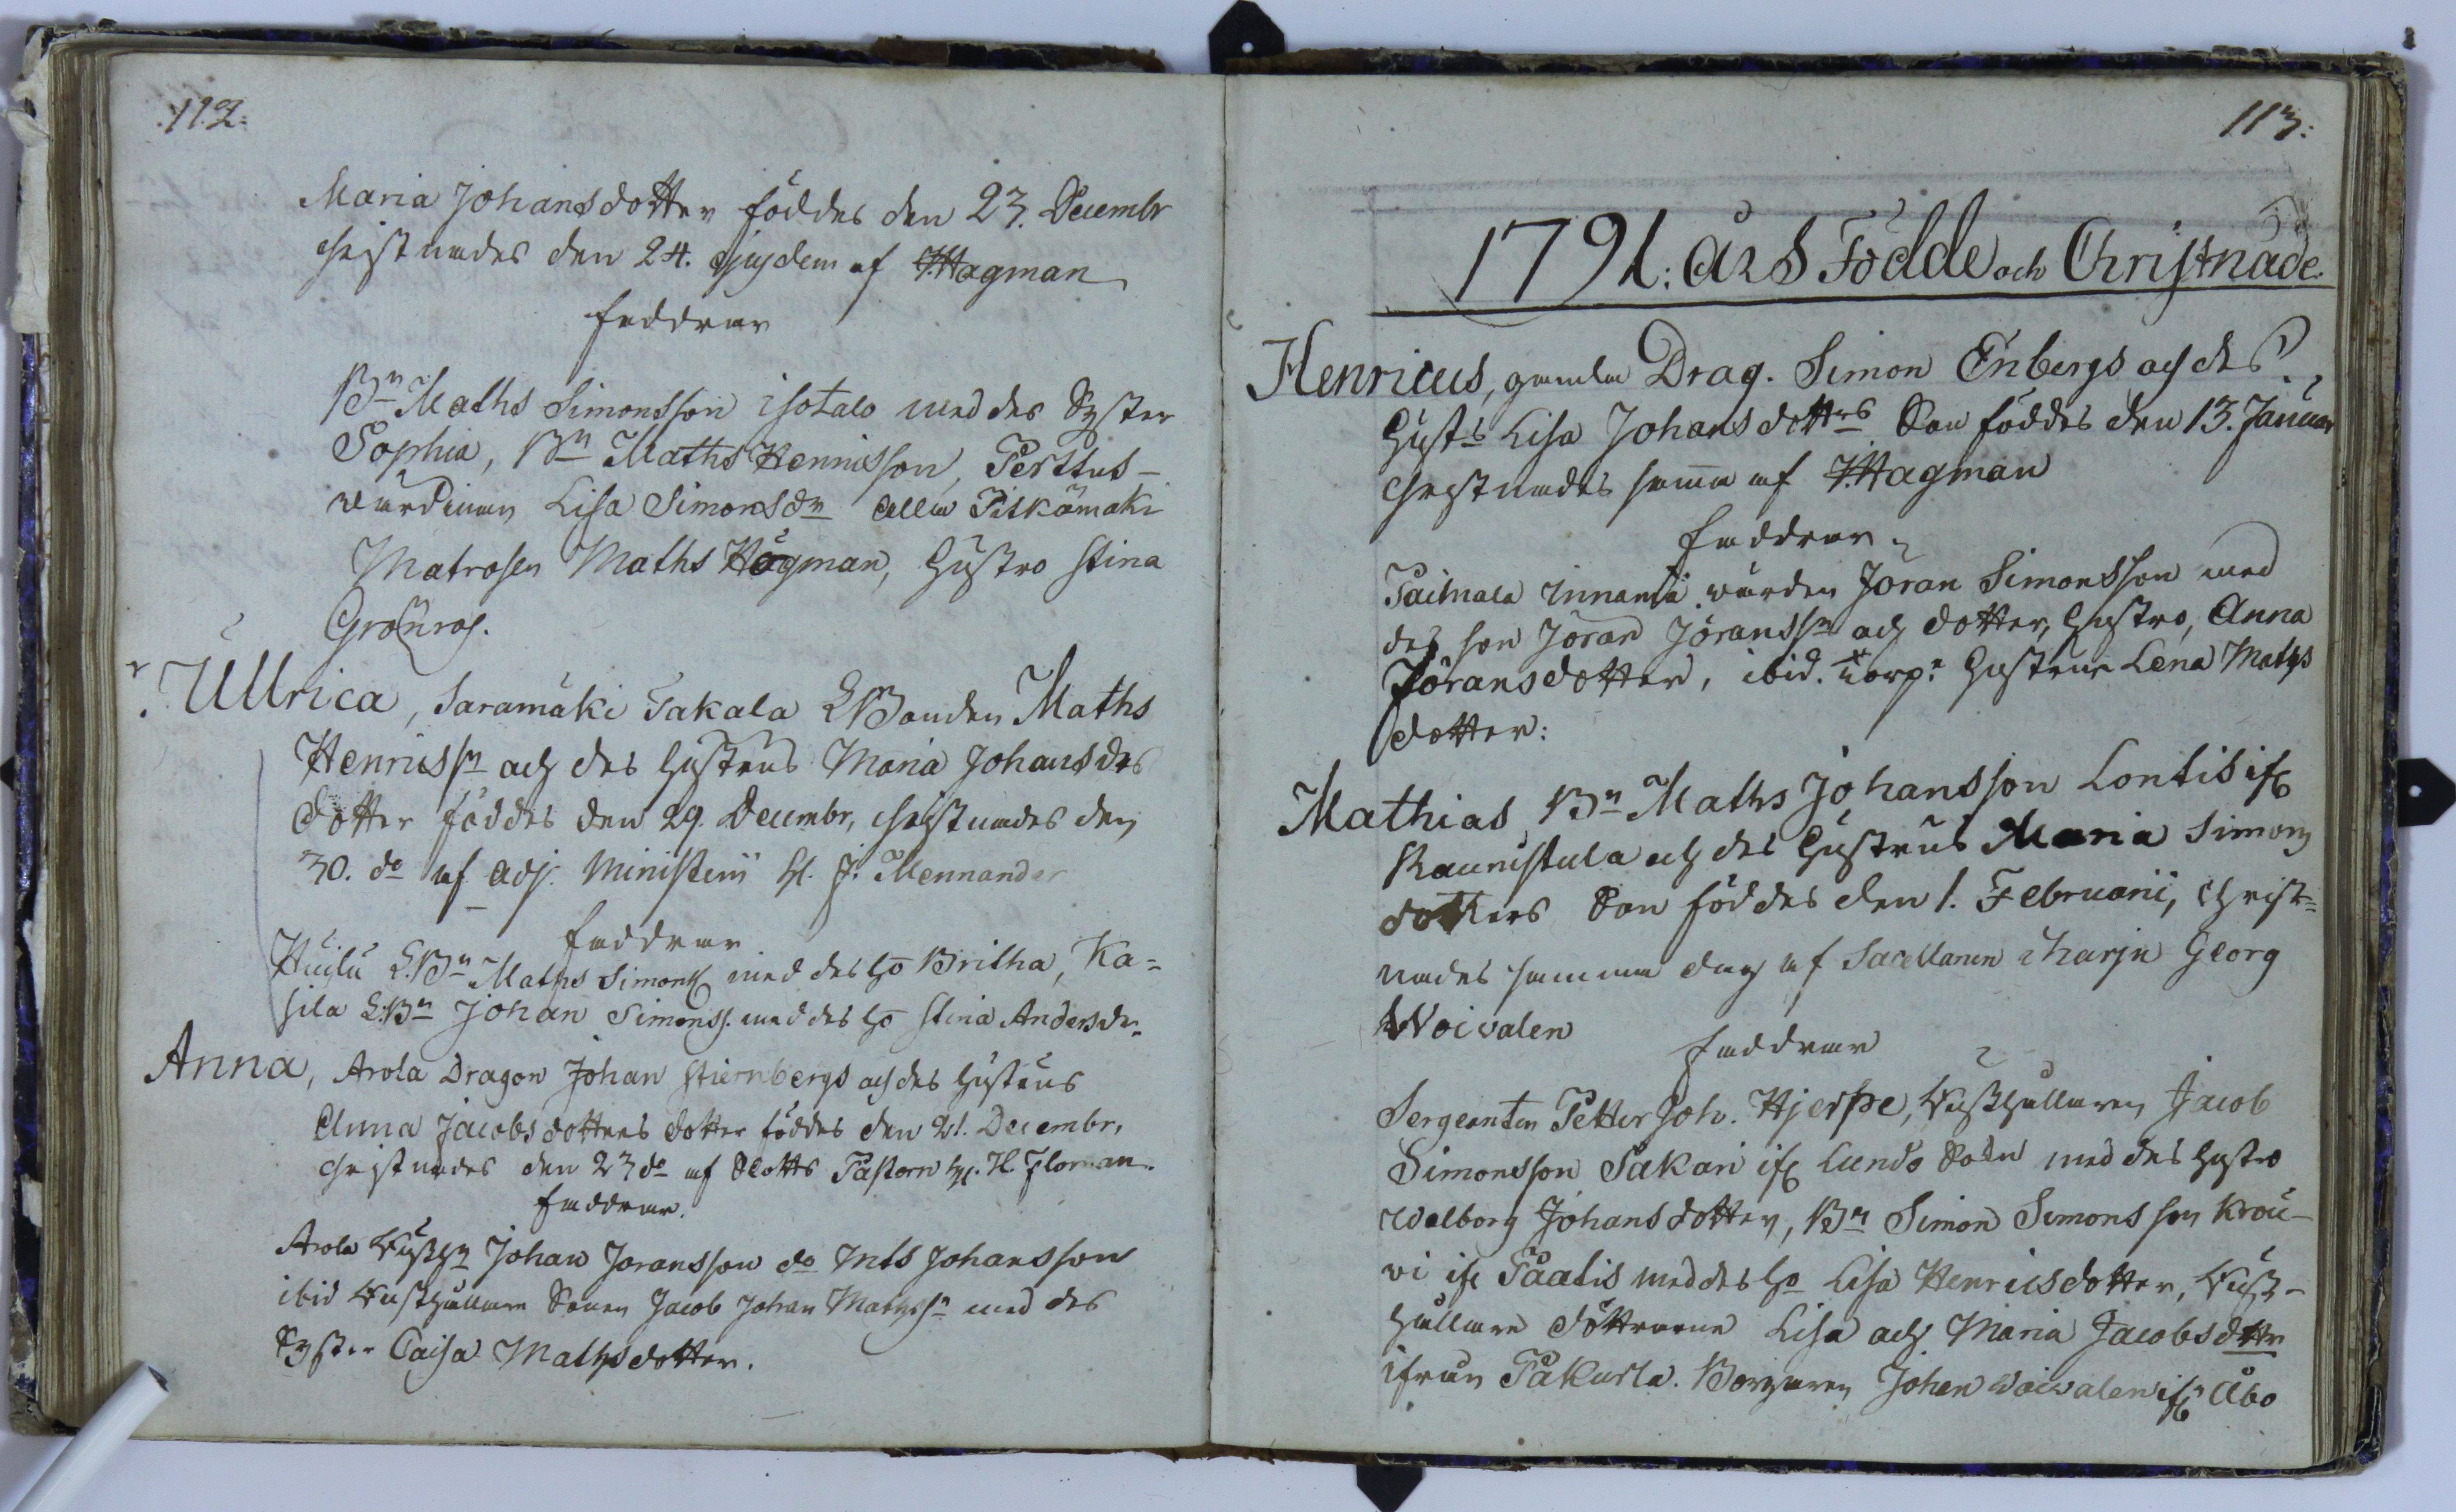 112:
Maria Johansdotter föddes den 23. Decembr
christnades den 24. ejusdem af J. Hagman
faddrar
Bn Maths Simonsson isotalo med des Syster
Sophia, Bn Maths Henricsson, Perttus-
värdinnan Lisa Simonsdr alla Pitkämäki
Matrosen Maths Högman, Hustro Stina
Grönros.
Ullrica, Saramäki Takala LBonden Maths
Henricssn och des hustrus Maria Johansdrs
dotter föddes den 29. Decembr, christnades den
30. do af adj. Ministerii H. J. Mennander
faddrar
LBn Maths Simonss med des ho Britha, Ka-
sila LBn Johan Simonss. med des ho Stina Andersdr.
Anna, Arola Dragon Johan Stiernbergs och des hustrus
Anna Jacobsdotters dotter föddes den 21. Decembr,
christnades den 23 do af Slotts Pastorn H. H. Floman.
faddrar.
Arola Rusth Johan Joransson do Mts Johansson
ibid Rusthållare Sonen Jacob Johan Mathssn med des
Syster Caisa Mathsdotter.
113:
1791: års Födde och Christnade.
Henricus, gamla Drag. Simon Enbergs och des
Hustrs Lisa Johansdottrs Son föddes den 13. Januar
christnades samma af J. Hagman
faddrar
Paimala Innanså värden Jöran Simonsson med
des son Jöran Jöranssn och dotter, hustro, Anna
Jöransdotter, ibid. torp. hustrun Lena Maths
dotter:
Mathias Bn Maths Johansson Lontis ifr
Raunistula och des hustrus Maria Simons
dotters Son föddes den 1. Februarii, christ=
nades samma dag af Sacellanen i harju Georg
Woivalen
faddrar
Sergeanten Petter Joh. Hjerpe, Rusthållaren Jacob
Simonsson Sakari ifr Lundo Sokn med des hustro
Walborg Johansdotter, Bn Simon Simonsson Krou-
vi ifr Paatis med des ho Lisa Henricsdotter, Rust-
hållare döttrarne Lisa och Maria Jacobsdttr
ifrån Pakurla. Borgaren Johan Woivalen ifr Åbo